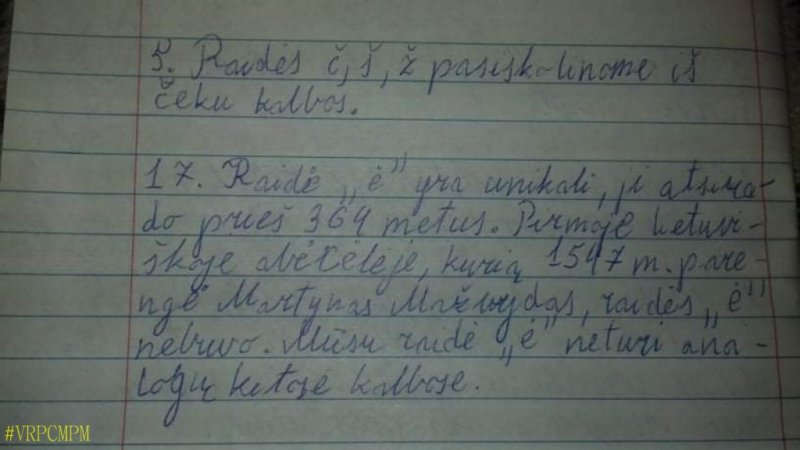 5. Raidės č, š, ž pasiskolinome iš
čekų kalbos.
17. Raidė „ė” yra unikali, ji atsira-
do prieš 364 metus. Pirmoje lietuvi-
škoje abėcėlėje, kurią 1547 m. pare-
ngė Martynas Mažvydas, raidės „ė”
nebuvo. Mūsų raidė „ė” neturi ana-
logų kitose kalbose.
#VRPCMPM